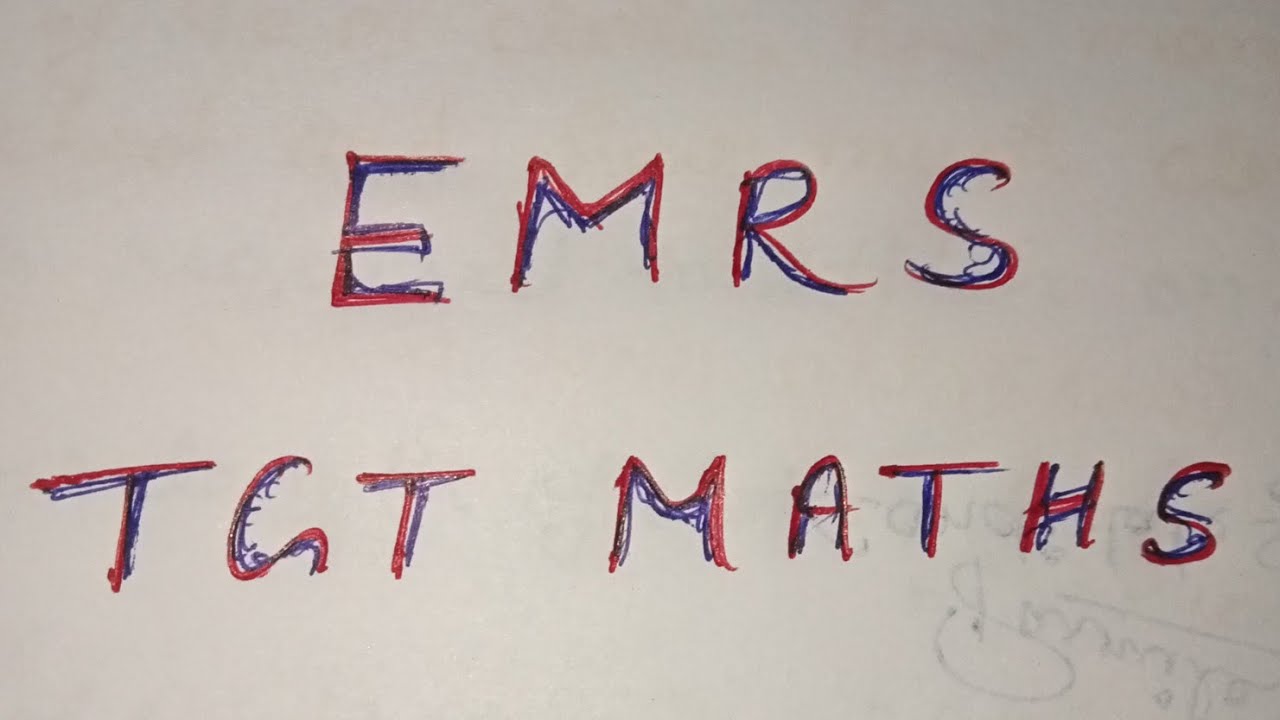 EMRS
TGT MATHS